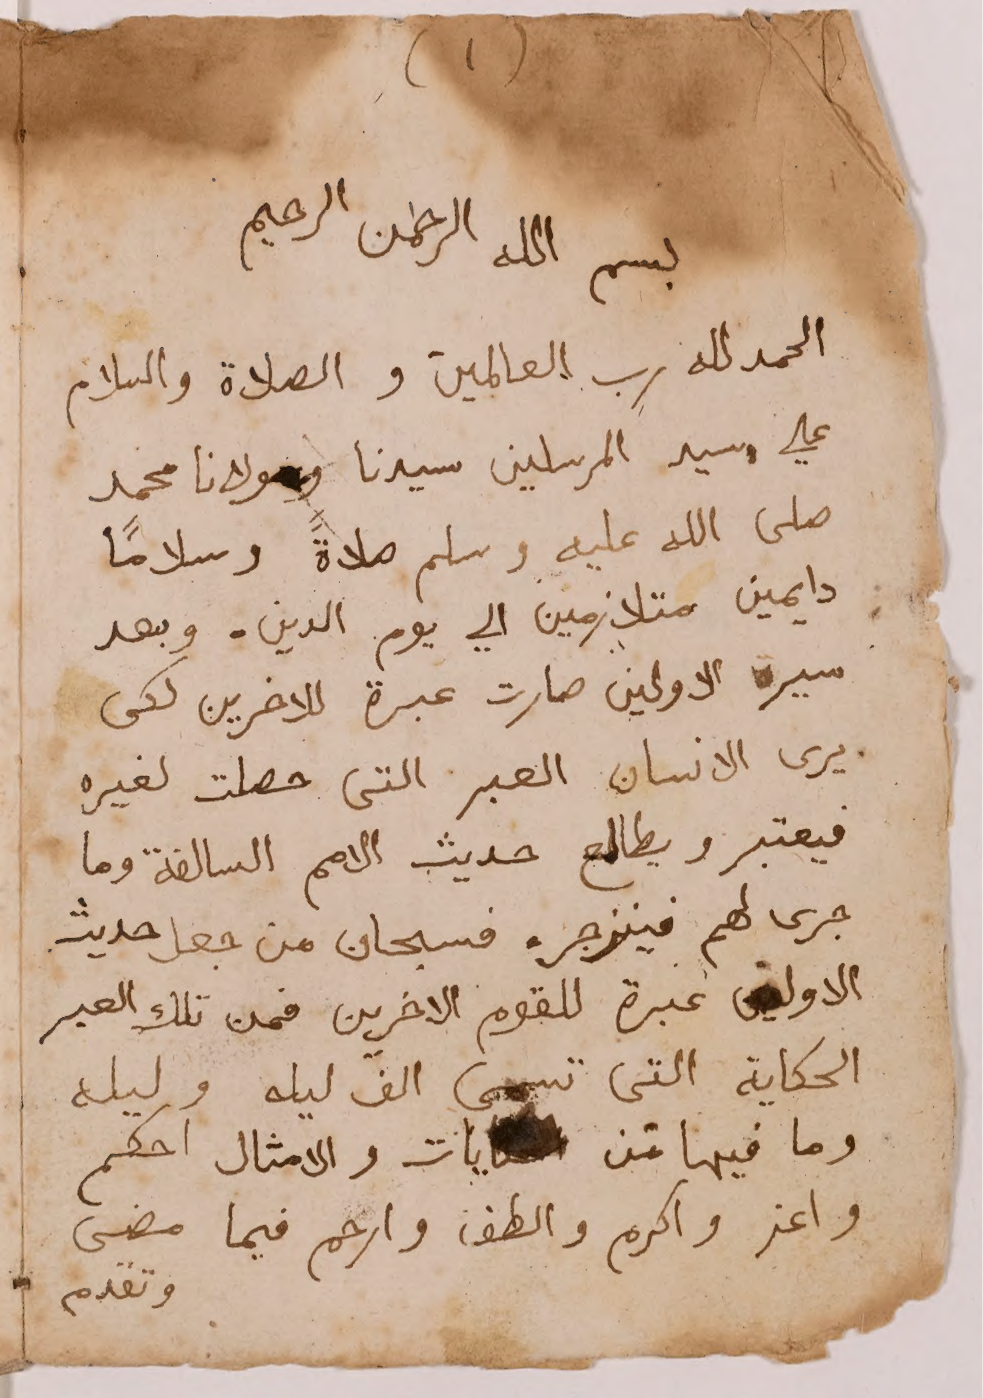 (١)
بسم الله الرحمن الرحيم
الحمد لله رب العالمين و الصلاة والسلام
علي سيد المرسلين سيدنا ومولانا محمد
صلى الله عليه و سلم صلاةً و سلامًا
دايمين متلازمين الي يوم الدين. وبعد
سير الاولين صارت عبرة للاخرين لكى
يرى الانسان العبر التى حصلت لغيره
فيعتبر و يطالع حديث الامم السالفة وما
جرى لهم فينزجر. فسبحان من جعل حديث
الاولين عبرة للقوم الاخرين فمن تلك العبر
الحكاية التى تسمى الف ليله و ليله
وما فيها من الحكايات و الامثال احكم
و اعز و اكرم و الطف و ارحم فيما مضى
وتقدم